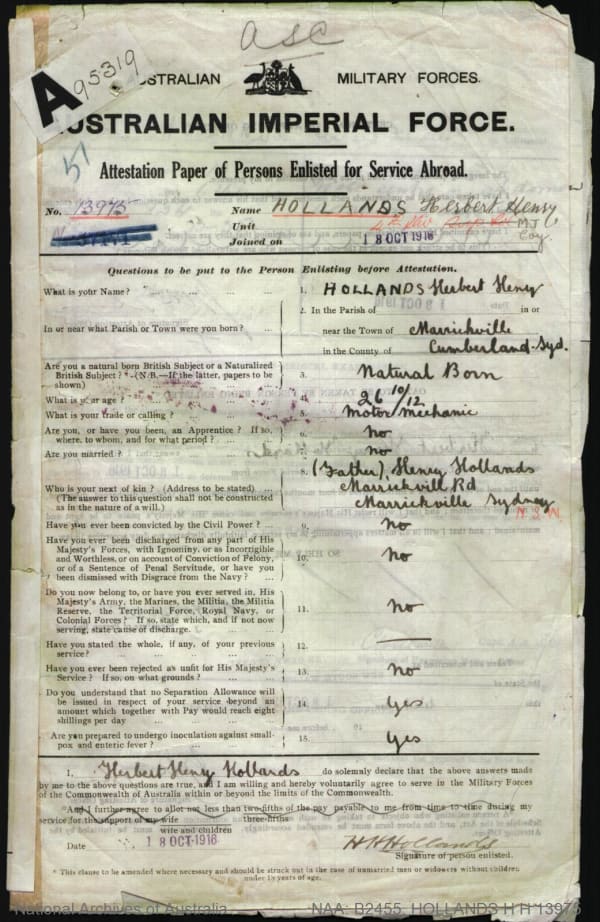 ASC
A 95319
AUSTRALIAN MILITARY FORCES.
AUSTRALIAN IMPERIAL FORCE.
51
Attestation Paper of Persons Enlisted for Service Abroad.
No. 13975 Name HOLLANDS Herbert Henry
Unit M T Coy.
Joined on 18 OCT 1916
Questions to be put to the Person Enlisting before Attestation.
What is your Name? 1. HOLLANDS Herbert Henry
2. In the Parish of in or
In or near what Parish or Town were you born? near the Town of Marrickville
in the County of Cumberland-Syd.
Are you a natural born British Subject or a Naturalized
British Subject? * (N.B.—If the latter, papers to be
shown) 3. Natural Born
What is your age? 4. 26 10/12
What is your trade or calling? 5. Motor Mechanic
Are you, or have you been, an Apprentice? If so,
where, to whom, and for what period? 6. No
Are you married? 7. No
8. (Father) Henry Hollands
Who is your next of kin? (Address to be stated) Marrickvill Rd
(The answer to this question shall not be constructed
as in the nature of a will.) Marrickville Sydney N.S.W.
Have you ever been convicted by the Civil Power? 9. No
Have you ever been discharged from any part of His
Majesty's Forces, with Ignominy, or as Incorrigible
and Worthless, or on account of Conviction of Felony,
or of a Sentence of Penal Servitude, or have you
been dismissed with Disgrace from the Navy? 10. No
Do you now belong to, or have you ever served in, His
Majesty's Army, the Marines, the Militia, the Militia
Reserve, the Territorial Force, Royal Navy, or
Colonial Forces? If so, state which, and if not now
serving, state cause of discharge. 11. No
Have you stated the whole, if any, of your previous
service? 12. —
Have you ever been rejected as unfit for His Majesty's
Service? If so, on what grounds? 13. No
Do you understand that no Separation Allowance will
be issued in respect of your service beyond an
amount which together with Pay would reach eight
shillings per day 14. Yes
Are you prepared to undergo inoculation against small-
pox and enteric fever? 15. Yes
I, Herbert Henry Hollands do solemnly declare that the above answers made
by me to the above questions are true, and I am willing and hereby voluntarily agree to serve in the Military Forces
of the Commonwealth of Australia within or beyond the limits of the Commonwealth.
*And I further agree to allot not less than two-fifths of the pay payable to me from time to time during my
service for the support of my wife three-fifths
wife and children
Date 18 OCT 1916 H H Hollands
Signature of person enlisted.
* This clause to be amended where necessary and should be struck out in the case of unmarried men or widowers without children
under 18 years of age.
National Archives of Australia NAA: B2455, HOLLANDS H H 13975